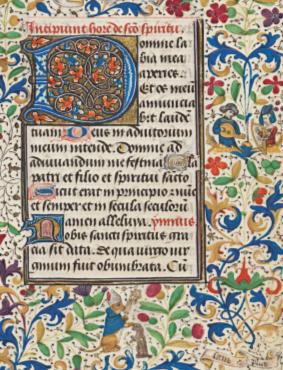 Incipiunt hore de sco spiritu.
Domine la
bia mea
aperies.
Et os meū
annunciab
it laudē
tuam. Deus in adiutorium
meum intende. Domine ad
adiuuandum me festina. Gla
patri et filio et spiritui sācto
Sicut erat in principio z nūc
et semper et in secula seculorū
amen alleluia. ymnus
Nobis sancti spiritus gra
cia sit data. de qua uirgo uir
ginum fuit obumbrata. Cū